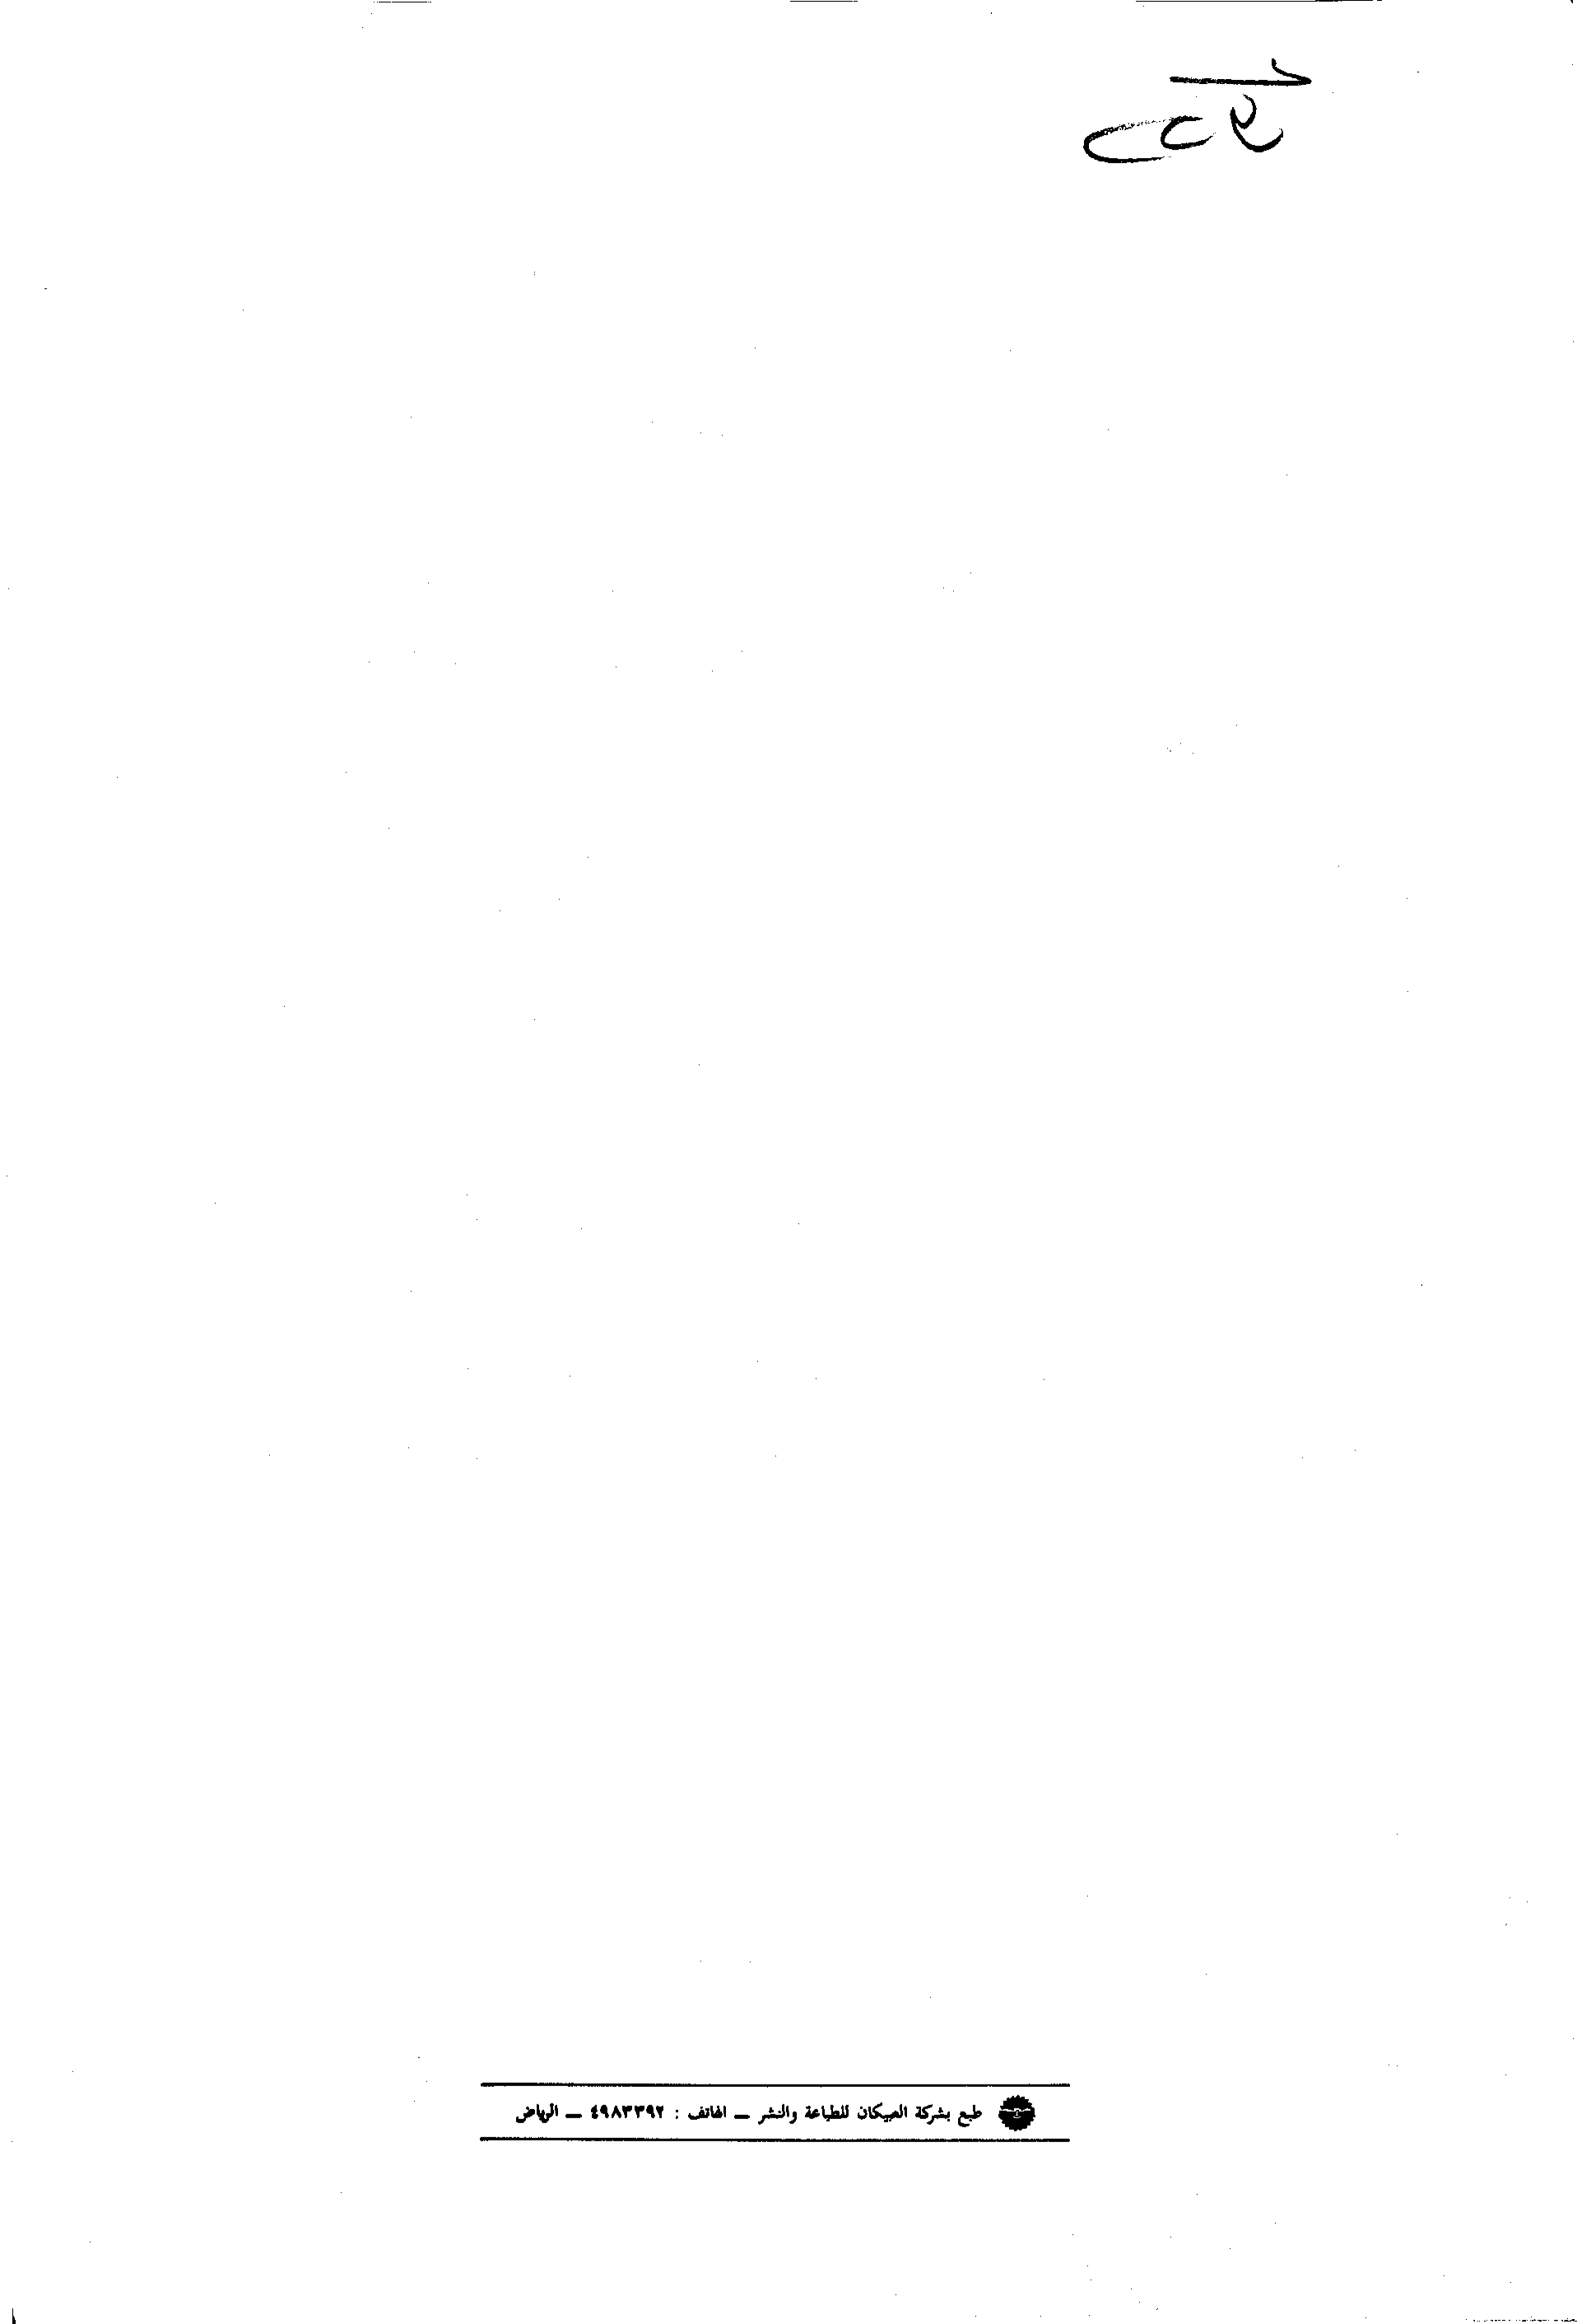 طبع بشركة العبيكان للطباعة والنشر ـ الهاتف : ٤٩٨٣٣٩٢ ـ الرياض